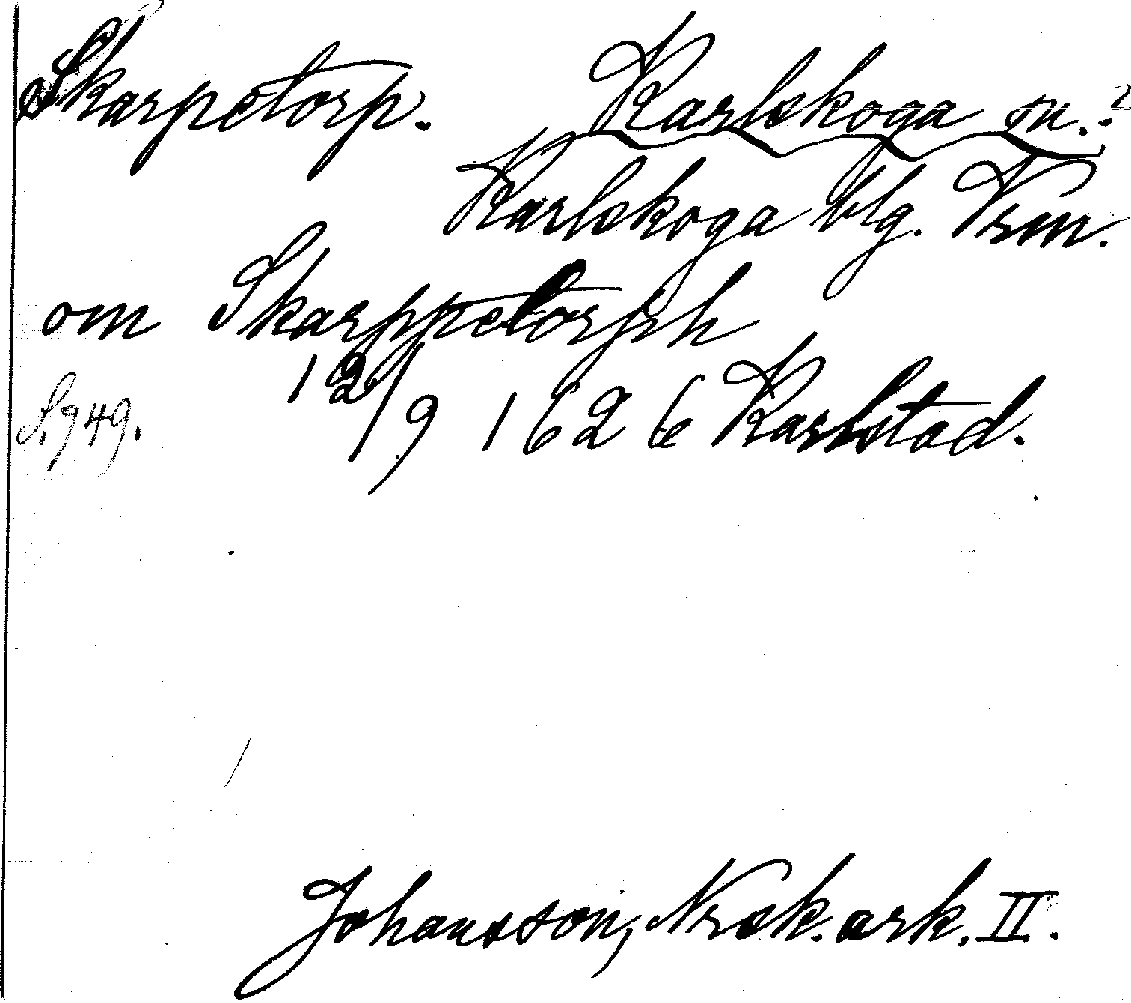 Skarpetorp. Karlskoga sn.?
Karlskoga blg. Vrm.
om Skarppetorph
12/9 1626 Karlstad.
S. 949.
Johansson, Norsk. ark. II.